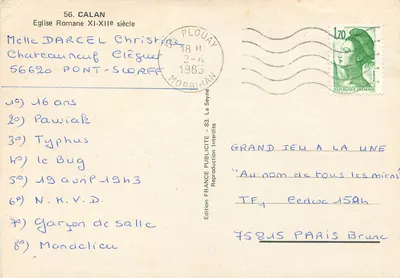 56. CALAN
Eglise Romane XI-XIIᵉ siècle
Melle DARCEL Christine
Chateauneuf Cléguer
56620 PONT-SCORFF
PLOUAY
18 H
2-4
1985
MORBIHAN
1,20
1°) 16 ans
2°) Pawiak
3°) Typhus
4°) le Bug
5°) 19 avril 1943
6°) N.K.V.D.
7°) Garçon de salle
8°) Mandelieu
Edition FRANCE PUBLICITE - 83. La Seyne
Reproduction Interdite
GRAND JEU A LA UNE
"Au nom de tous les miens"
TF1 Cedex 15Ah
75815 PARIS Brune